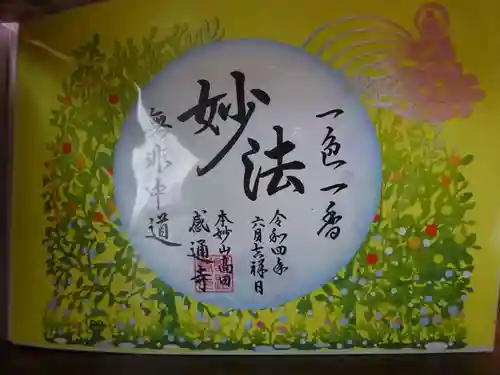 一色一香
妙法
無非中道
令和四年
六月六祥日
本妙山高田
感通寺